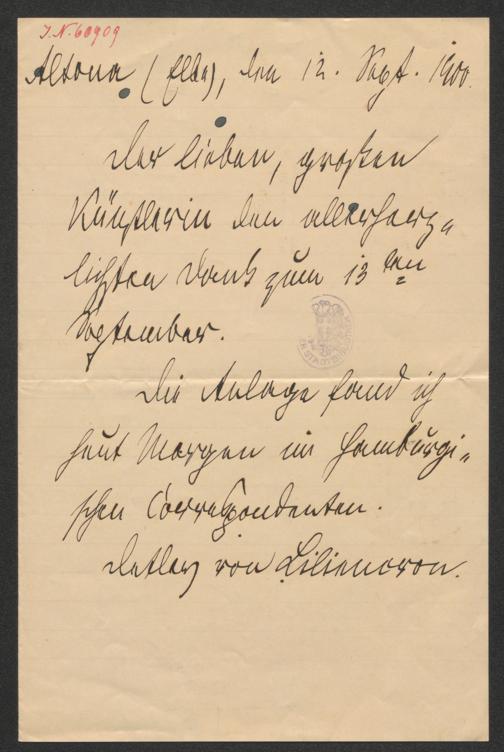 J.N. 60909
Altona (Elbe), den 12. Sept. 1900.
Der lieben, großen
Künstlerin den allerherz-
lichsten Dank zum 13ten
September.
Die Anlage fand ich
heut Morgen im Hamburgi-
schen Correspondenten.
Detlev von Liliencron.